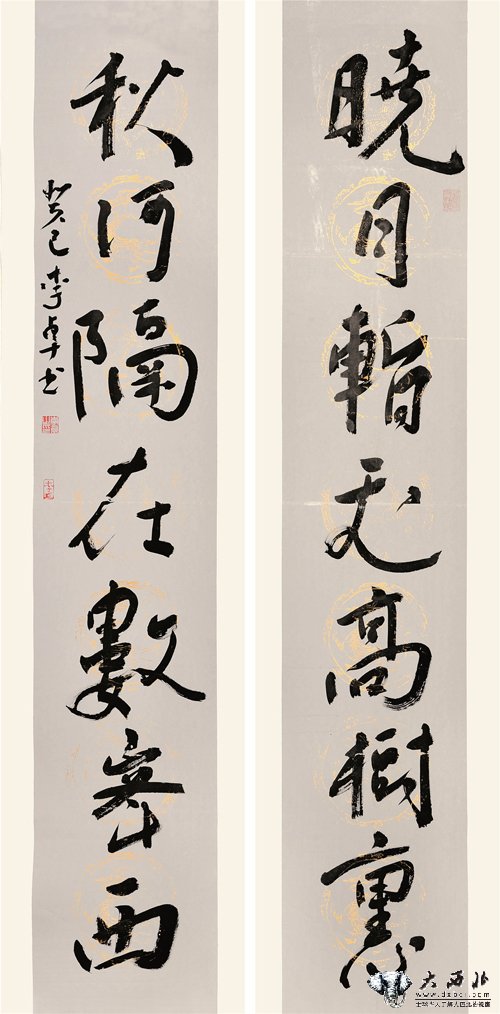 曉月暫飛高樹裏
秋河隔在數峯西
癸巳李卓书
大西北